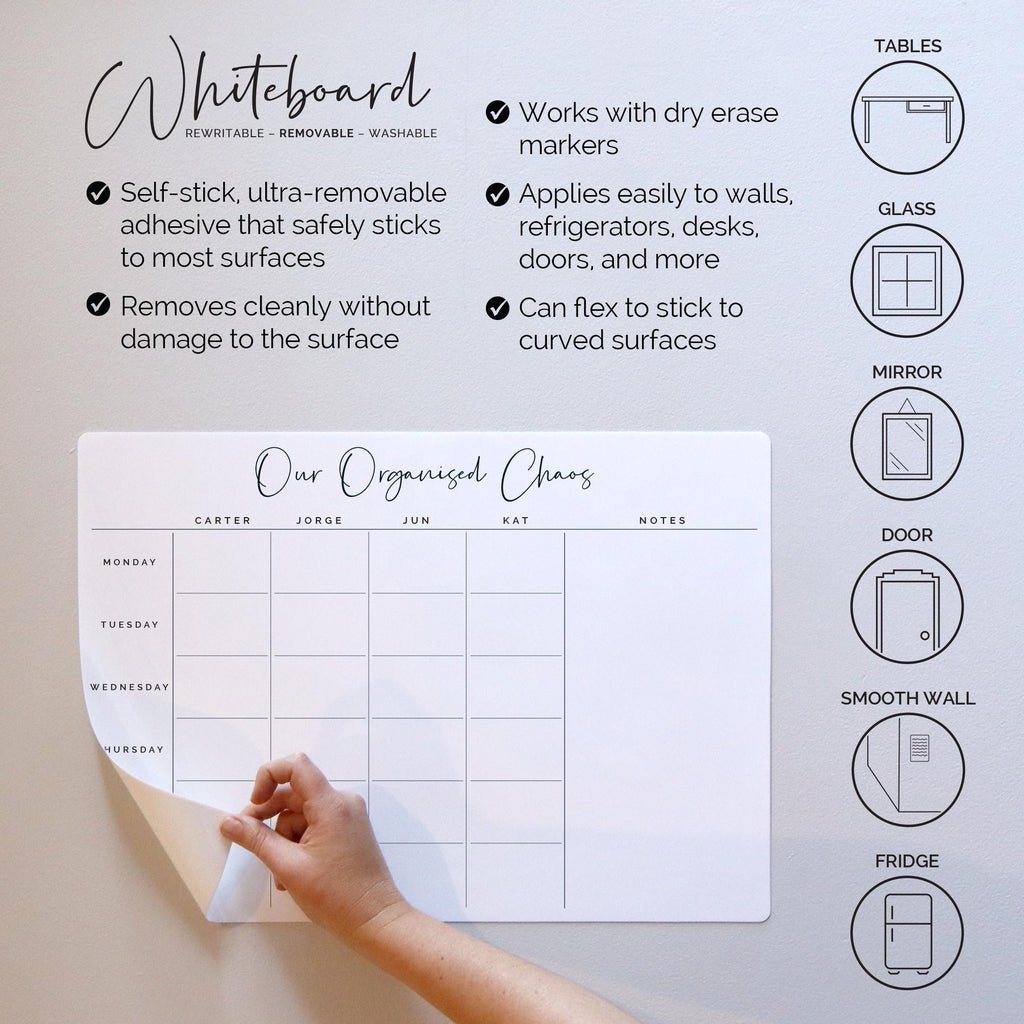 Whiteboard
REWRITABLE – REMOVABLE – WASHABLE
Self-stick, ultra-removable
adhesive that safely sticks
to most surfaces
Removes cleanly without
damage to the surface
Works with dry erase
markers
Applies easily to walls,
refrigerators, desks,
doors, and more
Can flex to stick to
curved surfaces
TABLES
GLASS
MIRROR
DOOR
SMOOTH WALL
FRIDGE
Our Organised Chaos
CARTER JORGE JUN KAT NOTES
MONDAY
TUESDAY
WEDNESDAY
HURSDAY